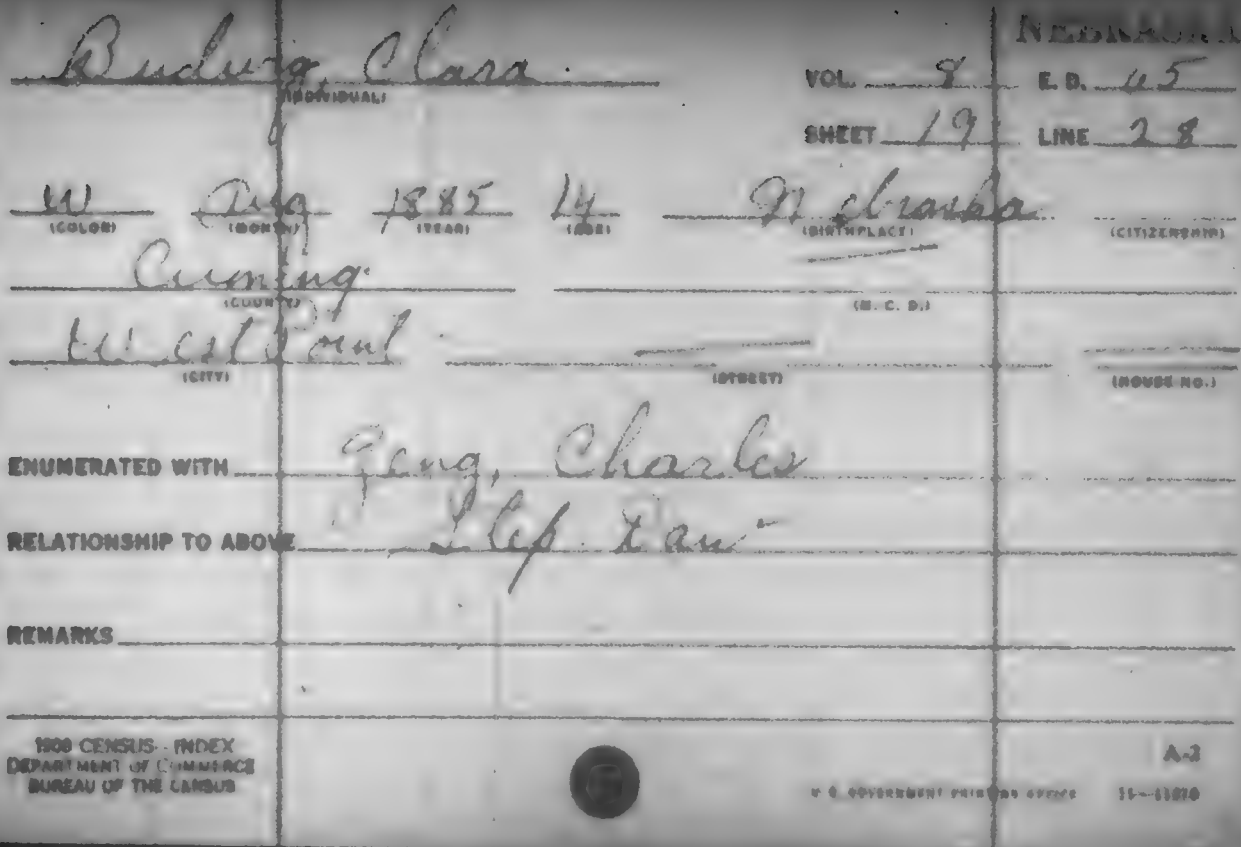 NEBRASKA
Budwig, Clara.
(INDIVIDUAL)
VOL. 8 E. D. 45
SHEET 19 LINE 28
W Aug 1885 14 Nebraska
(COLOR) (MONTH) (YEAR) (AGE) (BIRTHPLACE) (CITIZENSHIP)
Cuming
(COUNTY) (M. C. D.)
West Point
(CITY) (STREET) (HOUSE NO.)
ENUMERATED WITH Geng, Charles
RELATIONSHIP TO ABOVE Step Dau
REMARKS
1900 CENSUS - INDEX
DEPARTMENT OF COMMERCE
BUREAU OF THE CENSUS
A-3
U. S. GOVERNMENT PRINTING OFFICE